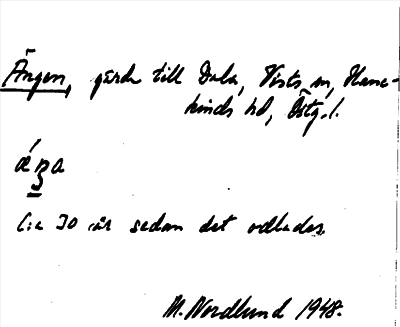 Ängen, gärde till Dala, Vists sn, Hane-
kinds hd, Östg.l.
C:a 30 år sedan det odlades.
M. Nordlund 1948.